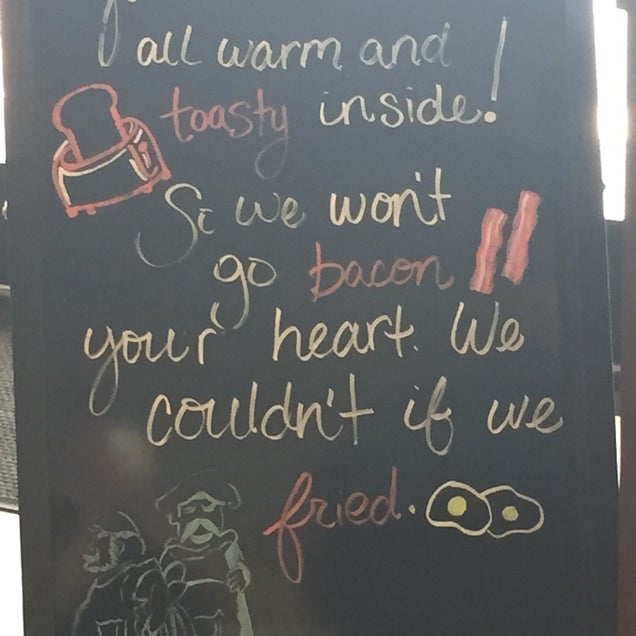 all warm and
toasty inside!
So we won't
go bacon
your heart. We
couldn't if we
fried.